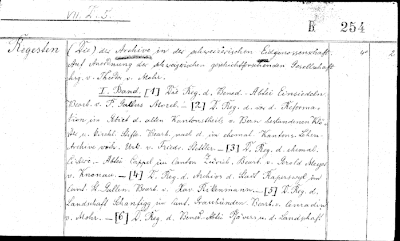 VII. Z. 5.
B 254
Regesten (Die) der Archive in der schweizerischen Eidgenossenschaft.
Auf Anordnung der schweizerischen geschichtforschenden Gesellschaft
hrg. v. Theodor v. Mohr. 4° 2
I. Band. [1] Die Reg. d. Bened. Abtei Einsiedeln.
Bearb. v. P. Gallus Morel. - [2] D. Reg. d. vor d. Reforma-
tion im Kirch. d. alten Kantonstheils v. Bern bestandenen Klö-
ster u. kirchl. Stift. Bearb. nach d. im ehemal. Kantons
Archive vorh. Urk. v. Friedr. Stettler. - [3] D. Reg. d. ehemal.
Cisterc. - Abtei Cappel im Canton Zürich. Bearb. v. Gerold Meyer
v. Knonau. - [4] D. Reg. d. Archive d. Stadt Rapperswyl im
Cant. St. Gallen. Bearb. v. Xav. Rickenmann. - [5] D. Reg. d.
Landschaft Schanfigg im Cant. Graubünden. Bearb. v. Conradin
v. Mohr. - [6] D. Reg. d. Bened. Abtei Pfävers u. d. Landschaft